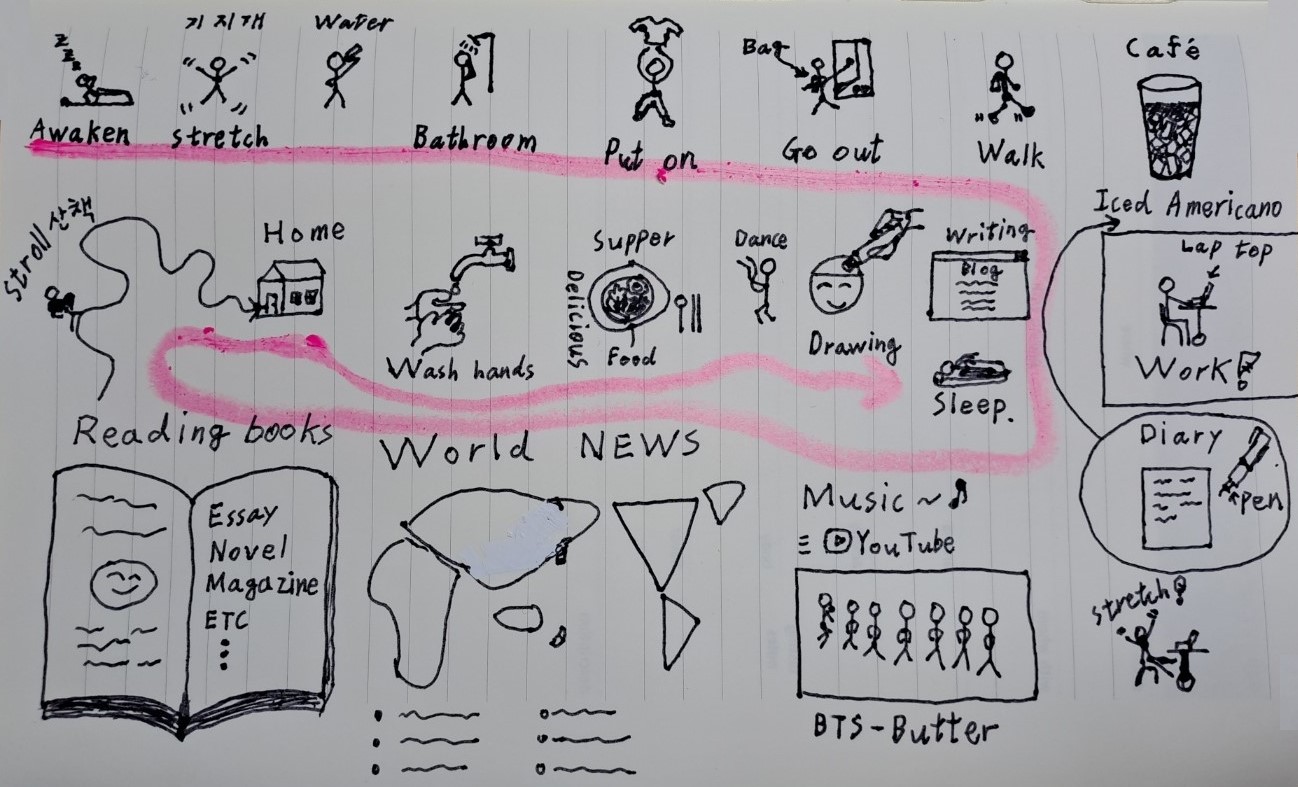 z
z
z
Awaken
기지개
stretch
Water
Bathroom
Put on
Bag
Go out
Walk
Café
Iced Americano
Lap top
Work!
Diary
Pen
stretch!
Music ~ ♪
YouTube
BTS-Butter
World NEWS
Reading books
Essay
Novel
Magazine
ETC
Stroll 산책
Home
Wash hands
Supper
Delicious
Food
Dance
Drawing
Writing
Blog
Sleep.